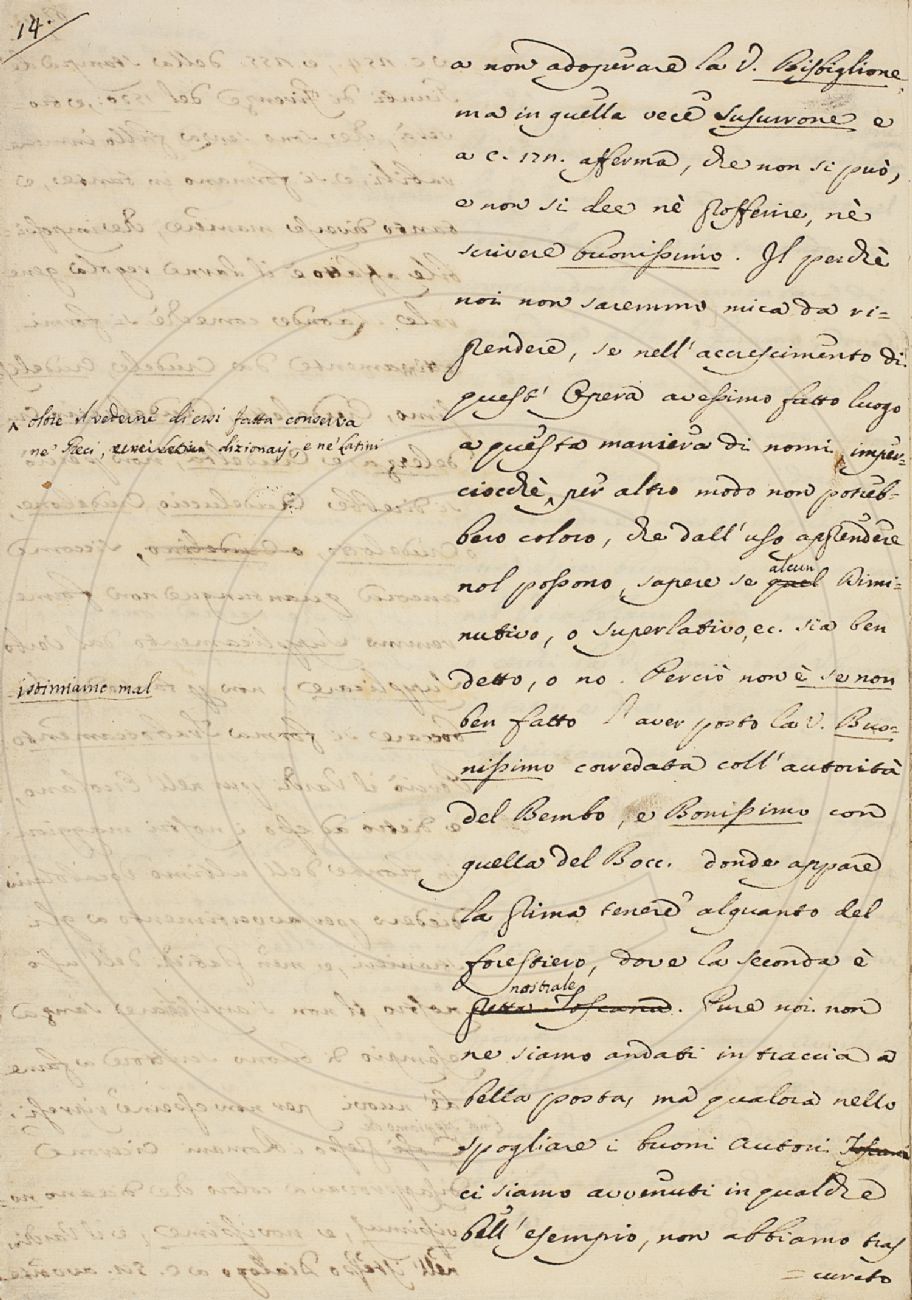 14.
a non adoperare la V. Bisbiglione,
ma in quella vece susurrone e
a c. 171. afferma, che non si può,
e non si dee nè profferire, nè
scrivere buonissimo. Il perchè
noi non saremmo mica da ri-
prendere, se nell'accrescimento di
quest'Opera avessimo fatto luogo
a questa maniera di nomi, imper-
ciocchè, per altro modo non potreb-
bero coloro, che dall'uso apprendere
nol possono, sapere se quel alcun Dimi-
nutivo, o superlativo, ec. sia ben
detto, o no. Perciò non è se non
ben fatto l'aver posto la V. Buo-
nissimo corredata coll'autorità
del Bembo, e Bonissimo con
quella del Bocc. donde appare
la prima tenere alquanto del
forestiero, dove la seconda è
pretta Toscana nostrale. Pure noi non
ne siamo andati in traccia a
bella posta, ma qualora nello
spogliare i buoni Autori Toscani
ci siamo avvenuti in qualche
bell'esempio, non abbiamo tras
=curato
oltre il vedersene di essi fatta conserva
ne' Greci, dizionarj, e ne' Latini
istimiamo mal